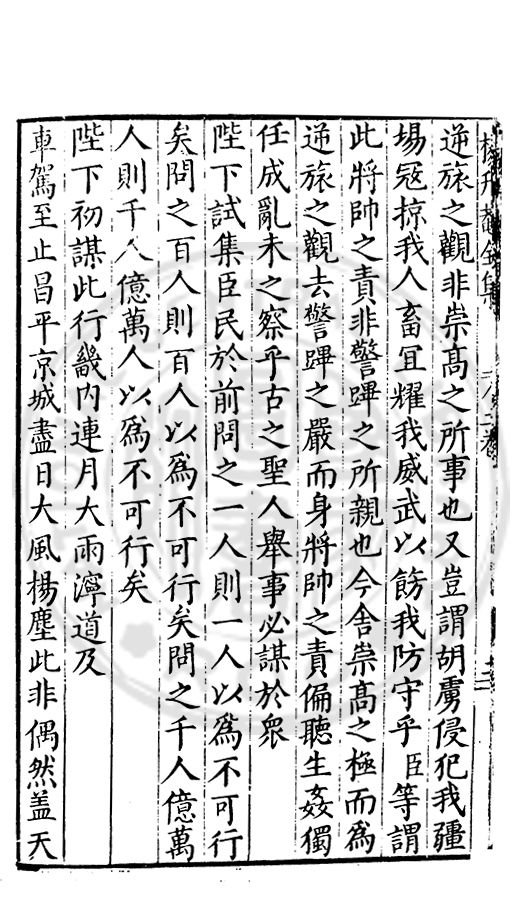 逆旅之觀非崇髙之所事也又豈謂胡虜侵犯我疆
場冦掠我人畜冝耀我威武以餝我防守乎臣等謂
此將帥之責非警蹕之所親也今舎崇髙之極而為
逆旅之觀去警蹕之嚴而身將帥之責偏聽生姦獨
任成亂未之察乎古之聖人舉事必謀於衆
陛下試集臣民於前問之一人則一人以爲不可行
矣問之百人則百人以爲不可行矣問之千人億萬
人則千人億萬人以爲不可行矣
陛下初謀此行畿内連月大雨濘道及
車駕至止昌平京城盡日大風楊塵此非偶然盖天